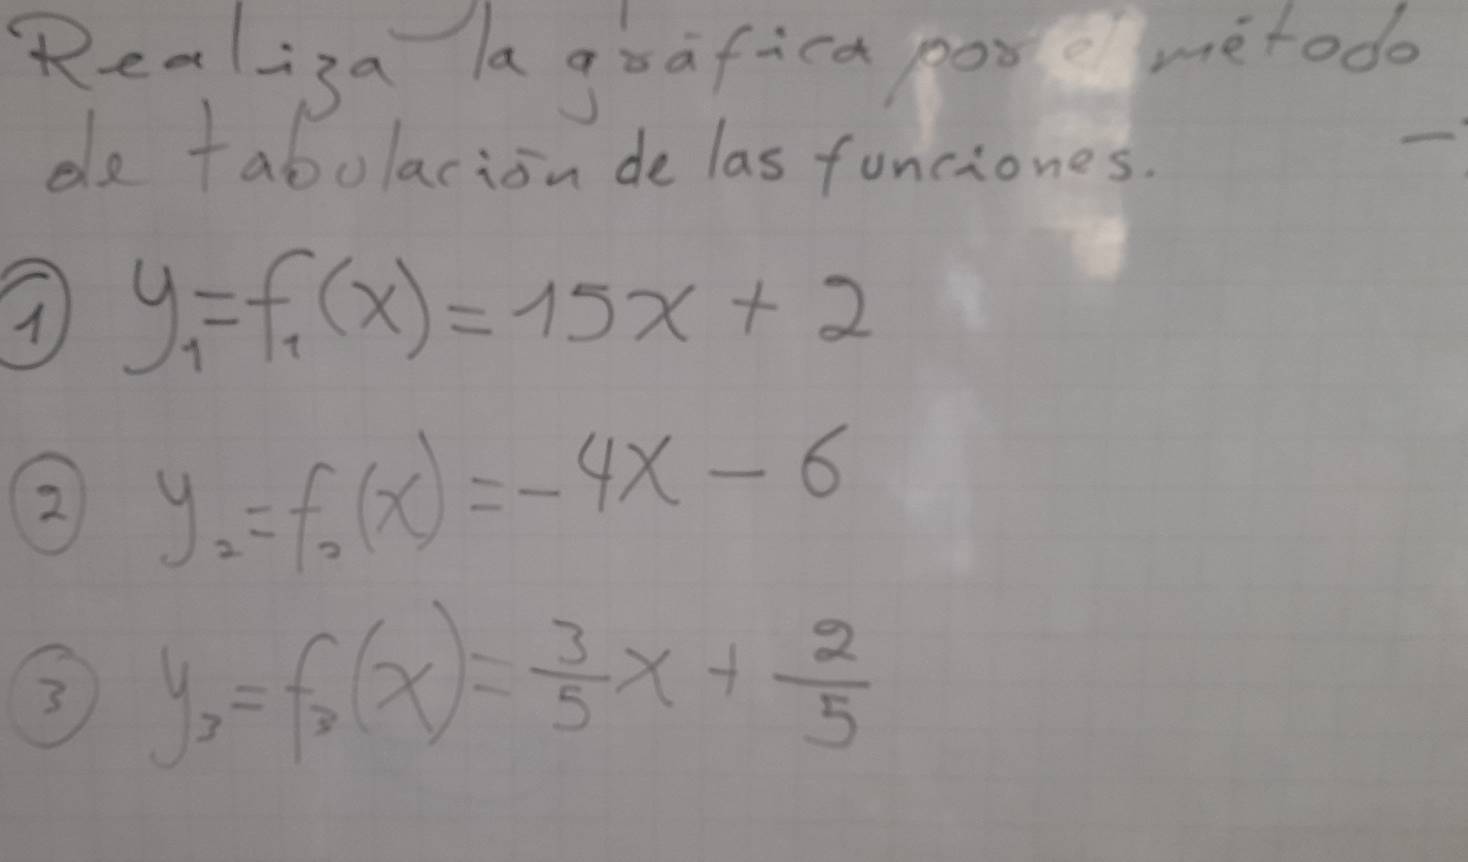 Realiza la gráfica por el método
de tabulación de las funciones.
① y₁=f₁(x)=15x + 2
② y₂=f₂(x)=-4x - 6
③ y₃=f₃(x)=3/5 x + 2/5